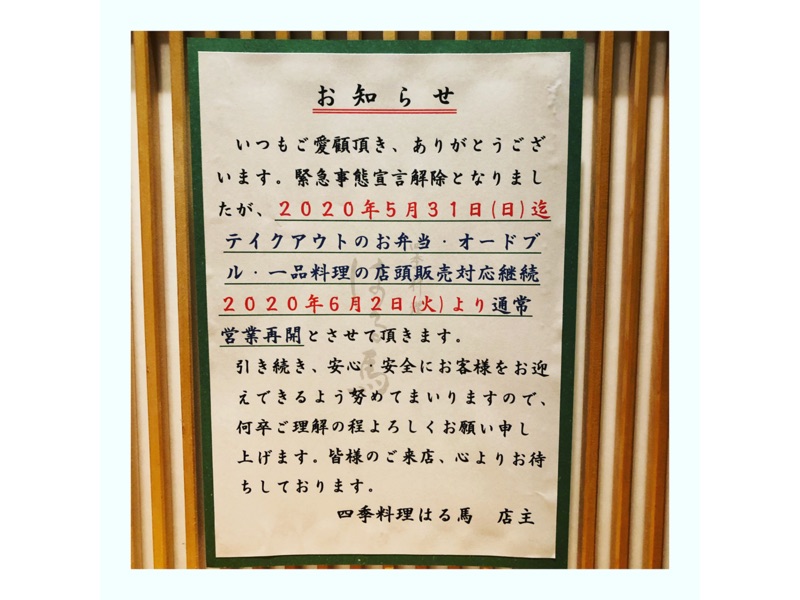 お知らせ
いつもご愛顧頂き、ありがとうござ
います。緊急事態宣言解除となりまし
たが、２０２０年５月３１日(日)迄
テイクアウトのお弁当・オードブ
ル・一品料理の店頭販売対応継続
２０２０年６月２日(火)より通常
営業再開とさせて頂きます。
引き続き、安心・安全にお客様をお迎
えできるよう努めてまいりますので、
何卒ご理解の程よろしくお願い申し
上げます。皆様のご来店、心よりお待
ちしております。
四季料理はる馬　店主